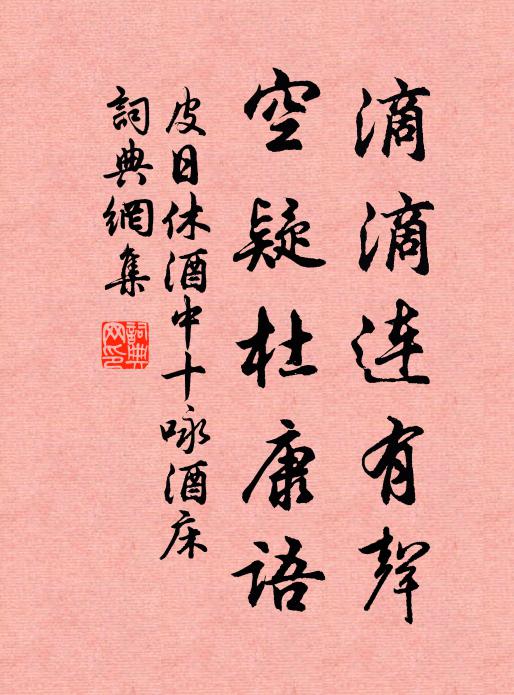 滴滴連有聲
空疑杜康語
皮日休酒中十咏酒床
詞典網集
詞典
网印